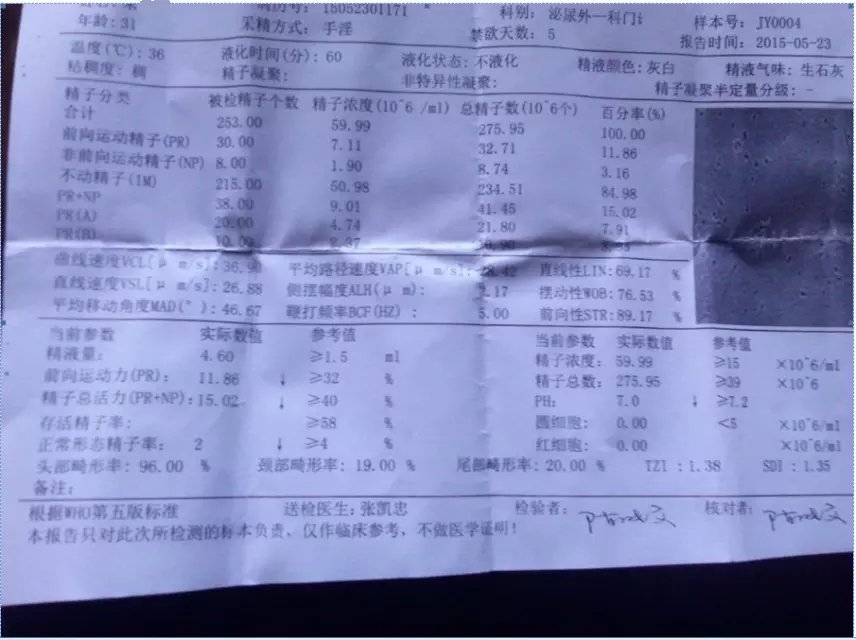 15052301171 科别: 泌尿外一科门
年龄: 31 采精方式: 手淫 禁欲天数: 5 样本号: JY0004
报告时间: 2015-05-23
温度(℃): 36 液化时间(分): 60 液化状态: 不液化 精液颜色: 灰白 精液气味: 生石灰
粘稠度: 稠 精子凝聚: 非特异性凝聚: 精子凝聚半定量分级: -
精子分类 被检精子个数 精子浓度(10^6 /ml) 总精子数(10^6个) 百分率(%)
合计 253.00 59.99 275.95 100.00
前向运动精子(PR) 30.00 7.11 32.71 11.86
非前向运动精子(NP) 8.00 1.90 8.74 3.16
不动精子(IM) 215.00 50.98 234.51 84.98
PR+NP 38.00 9.01 41.45 15.02
PR(A) 20.00 4.74 21.80 7.91
PR(B) 10.00 2.37
曲线速度VCL[μ m/s]: 36.90 平均路径速度VAP[μ m/s]: 直线性LIN: 69.17 %
直线速度VSL[μ m/s]: 26.88 侧摆幅度ALH(μ m): 2.17 摆动性WOB: 76.53 %
平均移动角度MAD(°): 46.67 鞭打频率BCF(HZ): 5.00 前向性STR: 89.17 %
当前参数 实际数值 参考值 当前参数 实际数值 参考值
精液量: 4.60 ≥1.5 ml 精子浓度: 59.99 ≥15 ×10^6/ml
前向运动力(PR): 11.86 ↓ ≥32 % 精子总数: 275.95 ≥39 ×10^6
精子总活力(PR+NP): 15.02 ↓ ≥40 % PH: 7.0 ↓ ≥7.2
存活精子率: ≥58 % 圆细胞: 0.00 <5 ×10^6/ml
正常形态精子率: 2 ↓ ≥4 % 红细胞: 0.00 ×10^6/ml
头部畸形率: 96.00 % 颈部畸形率: 19.00 % 尾部畸形率: 20.00 % TZI : 1.38 SDI : 1.35
备注:
根据WHO第五版标准 送检医生: 张凯忠 检验者: 核对者:
本报告只对此次所检测的标本负责、仅作临床参考，不做医学证明!